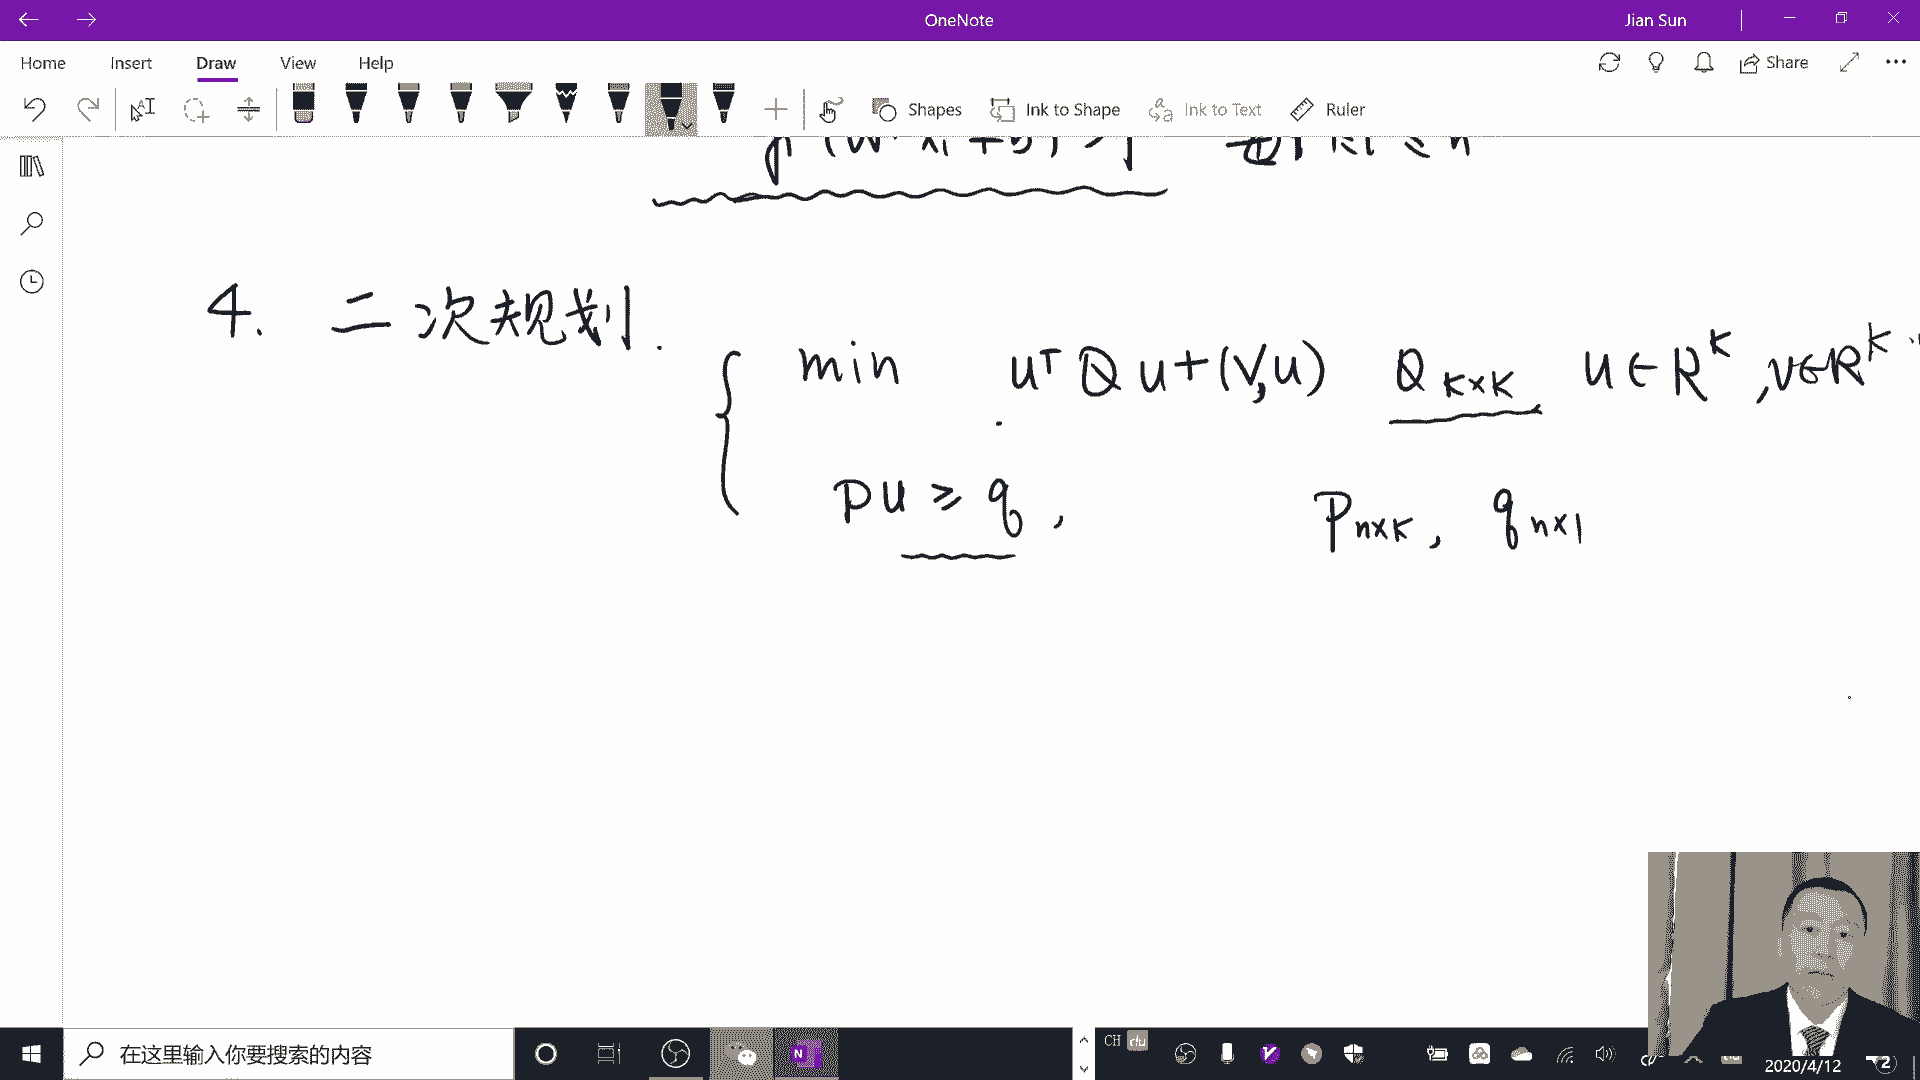 OneNote
Jian Sun
Home Insert Draw View Help
Share
Shapes Ink to Shape Ink to Text Ruler
4. 二次规划.
min uᵀQu+(v,u) Q K×K u∈R^K ,v∈R^K
pu ≥ q , P n×K , q n×1
在这里输入你要搜索的内容
CH
2020/4/12
2